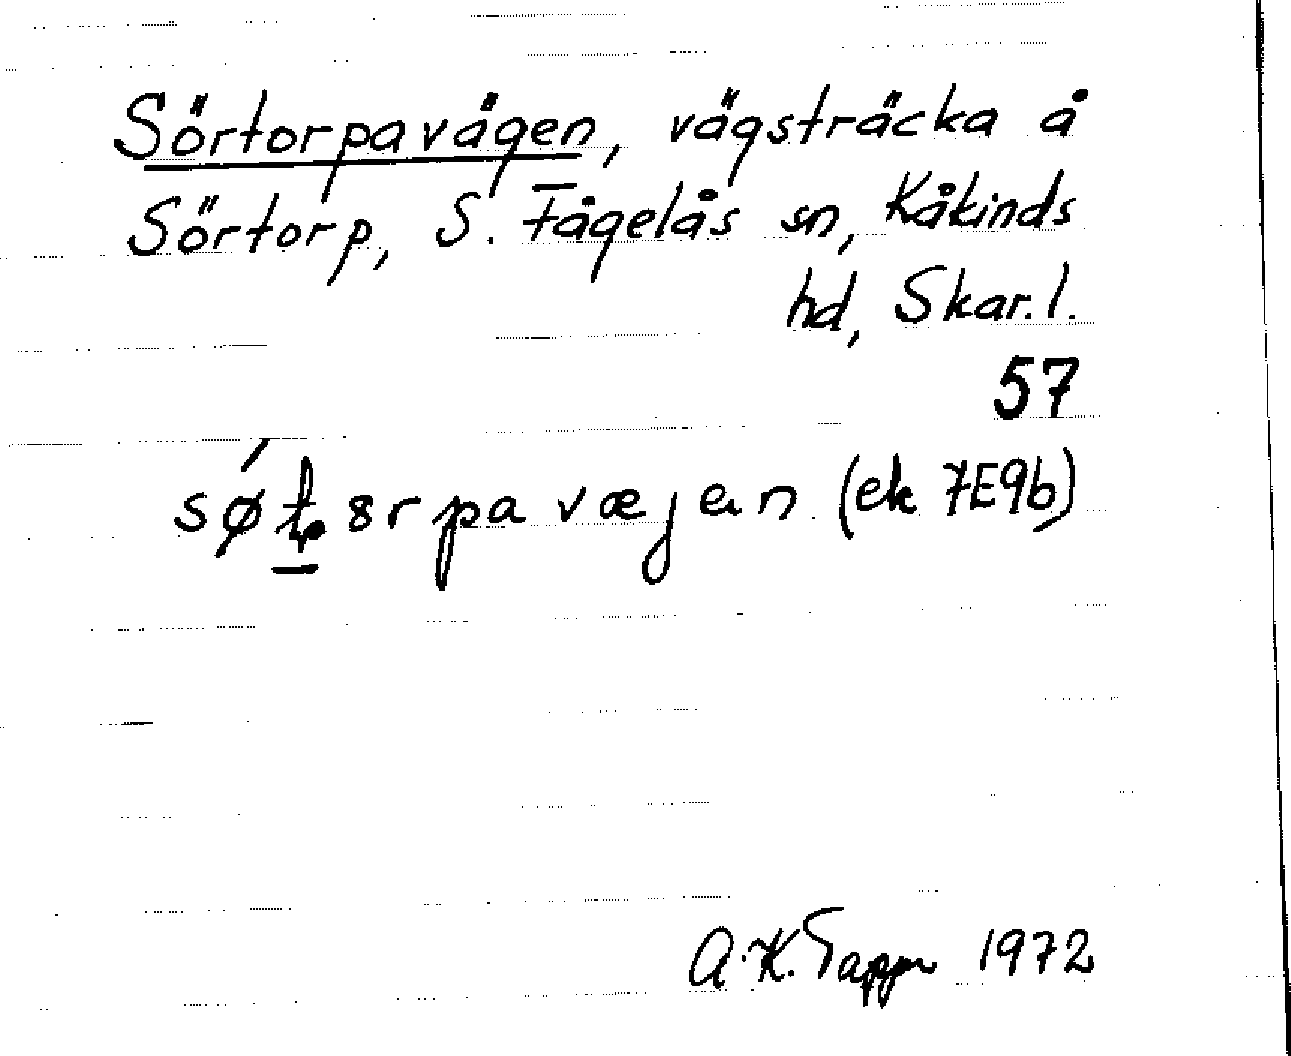 Sörtorpavägen, vägsträcka å
Sörtorp, S. Fågelås sn, Kåkinds
hd, Skar. l.
57
(ek 7E9b)
A.K. 1972